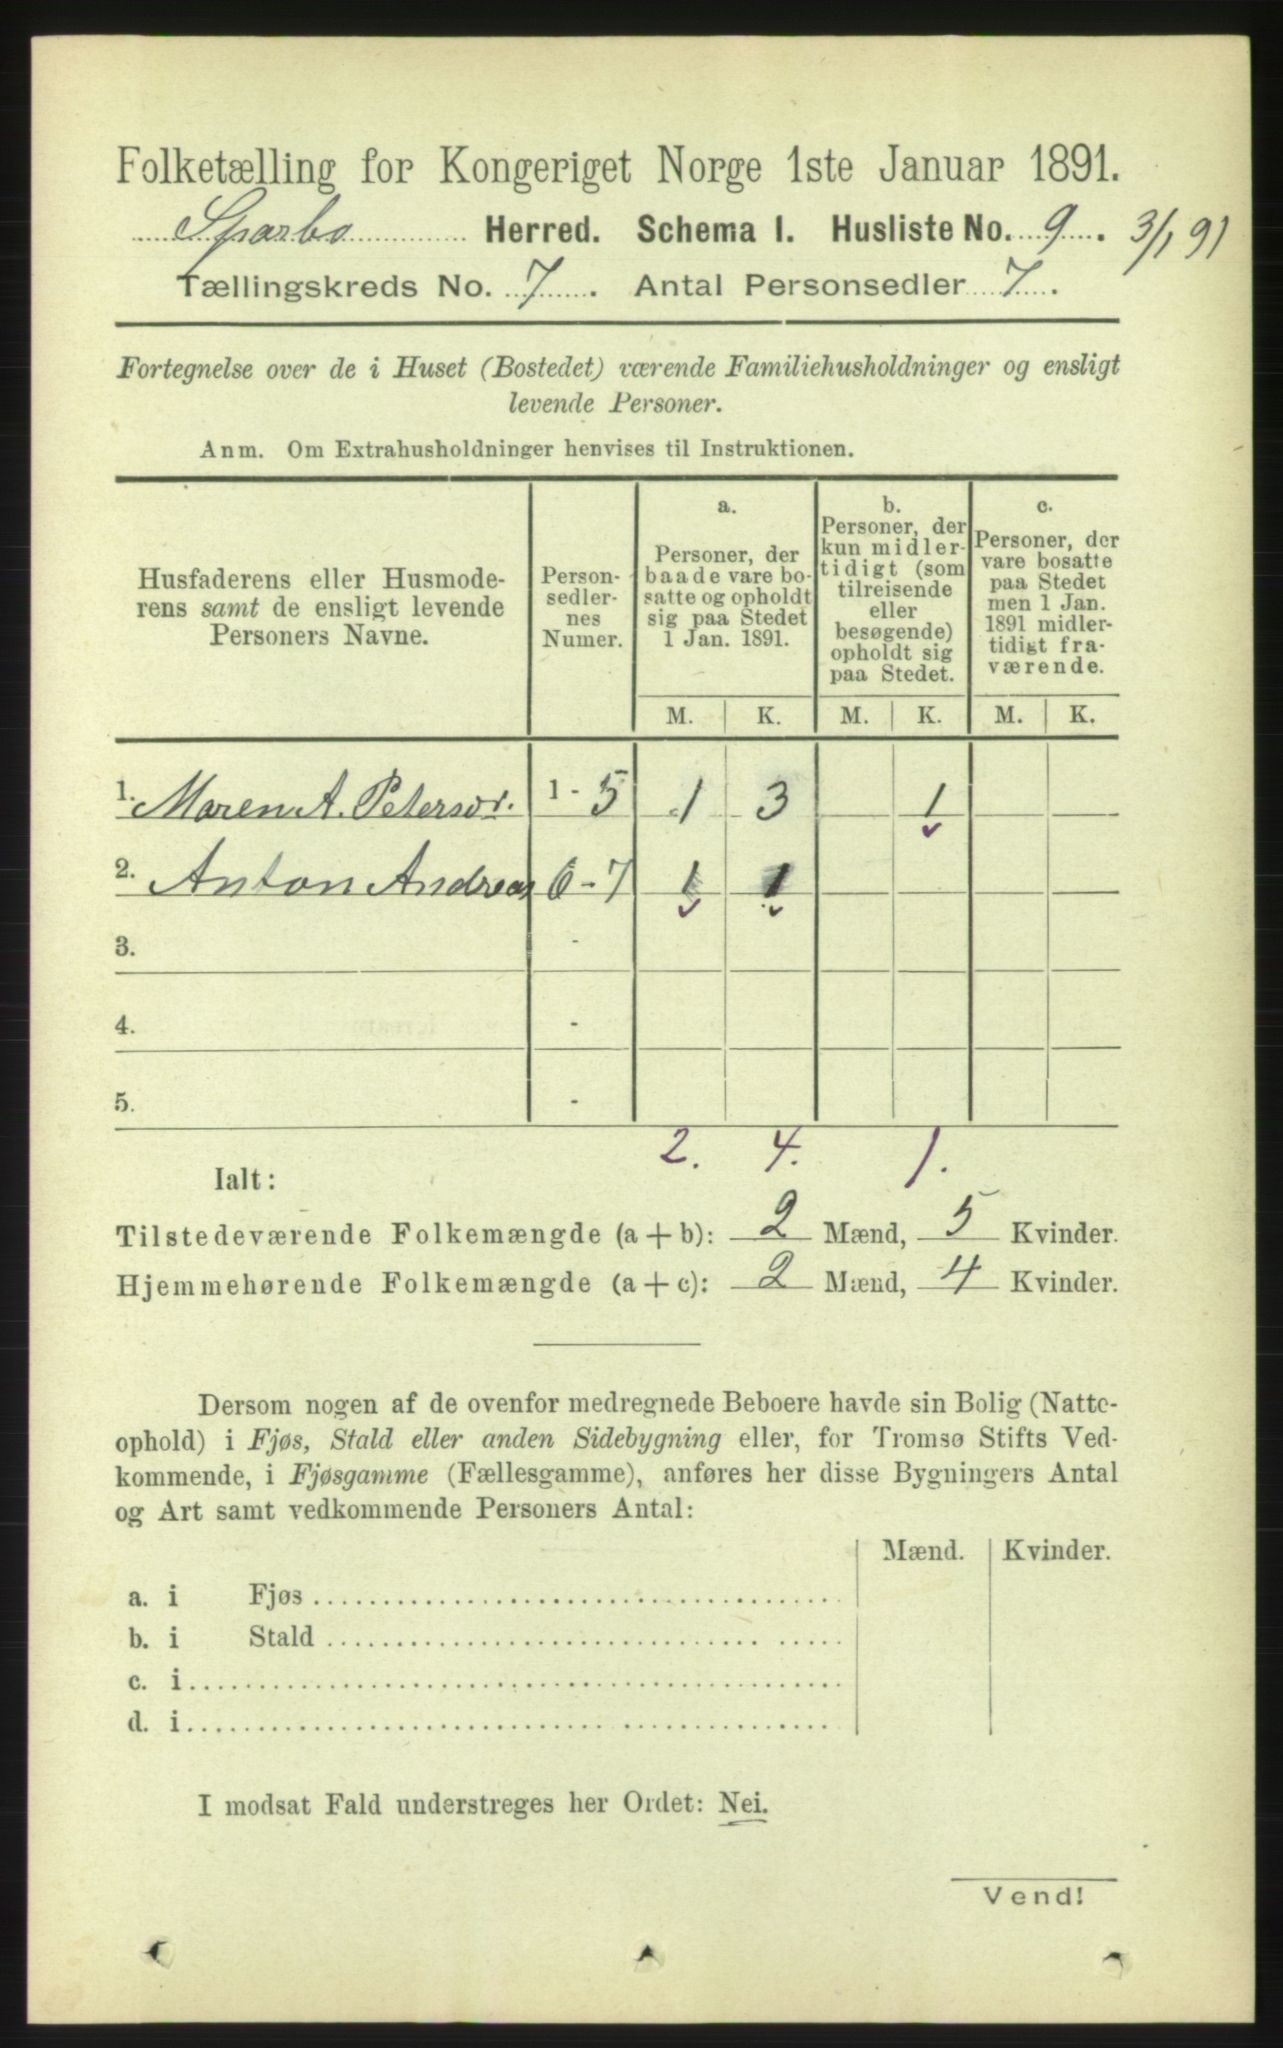 Folketælling for Kongeriget Norge 1ste Januar 1891.
Sparbo Herred. Schema I. Husliste No. 9. 3/1 91
Tællingskreds No. 7. Antal Personsedler 7.
Fortegnelse over de i Huset (Bostedet) værende Familiehusholdninger og ensligt
levende Personer.
Anm. Om Extrahusholdninger henvises til Instruktionen.
Husfaderens eller Husmode-
rens samt de ensligt levende
Personers Navne.
Person-
sedler-
nes
Numer.
a.
Personer, der
baade vare bo-
satte og opholdt
sig paa Stedet
1 Jan. 1891.
b.
Personer, der
kun midler-
tidigt (som
tilreisende
eller
besøgende)
opholdt sig
paa Stedet.
c.
Personer, der
vare bosatte
paa Stedet
men 1 Jan.
1891 midler-
tidigt fra-
værende.
M. K. M. K. M. K.
1. Maren A. Petersdr. 1 - 5 1 3 1
2. Anton Andreas 6 - 7 1 1
3. -
4. -
5. -
2. 4. 1.
Ialt:
Tilstedeværende Folkemængde (a + b): 2 Mænd, 5 Kvinder.
Hjemmehørende Folkemængde (a + c): 2 Mænd, 4 Kvinder.
Dersom nogen af de ovenfor medregnede Beboere havde sin Bolig (Natte-
ophold) i Fjøs, Stald eller anden Sidebygning eller, for Tromsø Stifts Ved-
kommende, i Fjøsgamme (Fællesgamme), anføres her disse Bygningers Antal
og Art samt vedkommende Personers Antal:
Mænd. Kvinder.
a. i Fjøs
b. i Stald
c. i
d. i
I modsat Fald understreges her Ordet: Nei.
Vend!